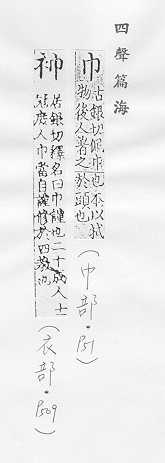 四聲篇海
巾
居銀切佩巾也本以拭
物後人著之於頭也
(巾部·P51)
居銀切釋名曰巾謹也二十成人士
冠庶人巾當自謹修於四教也
(衣部·P509)